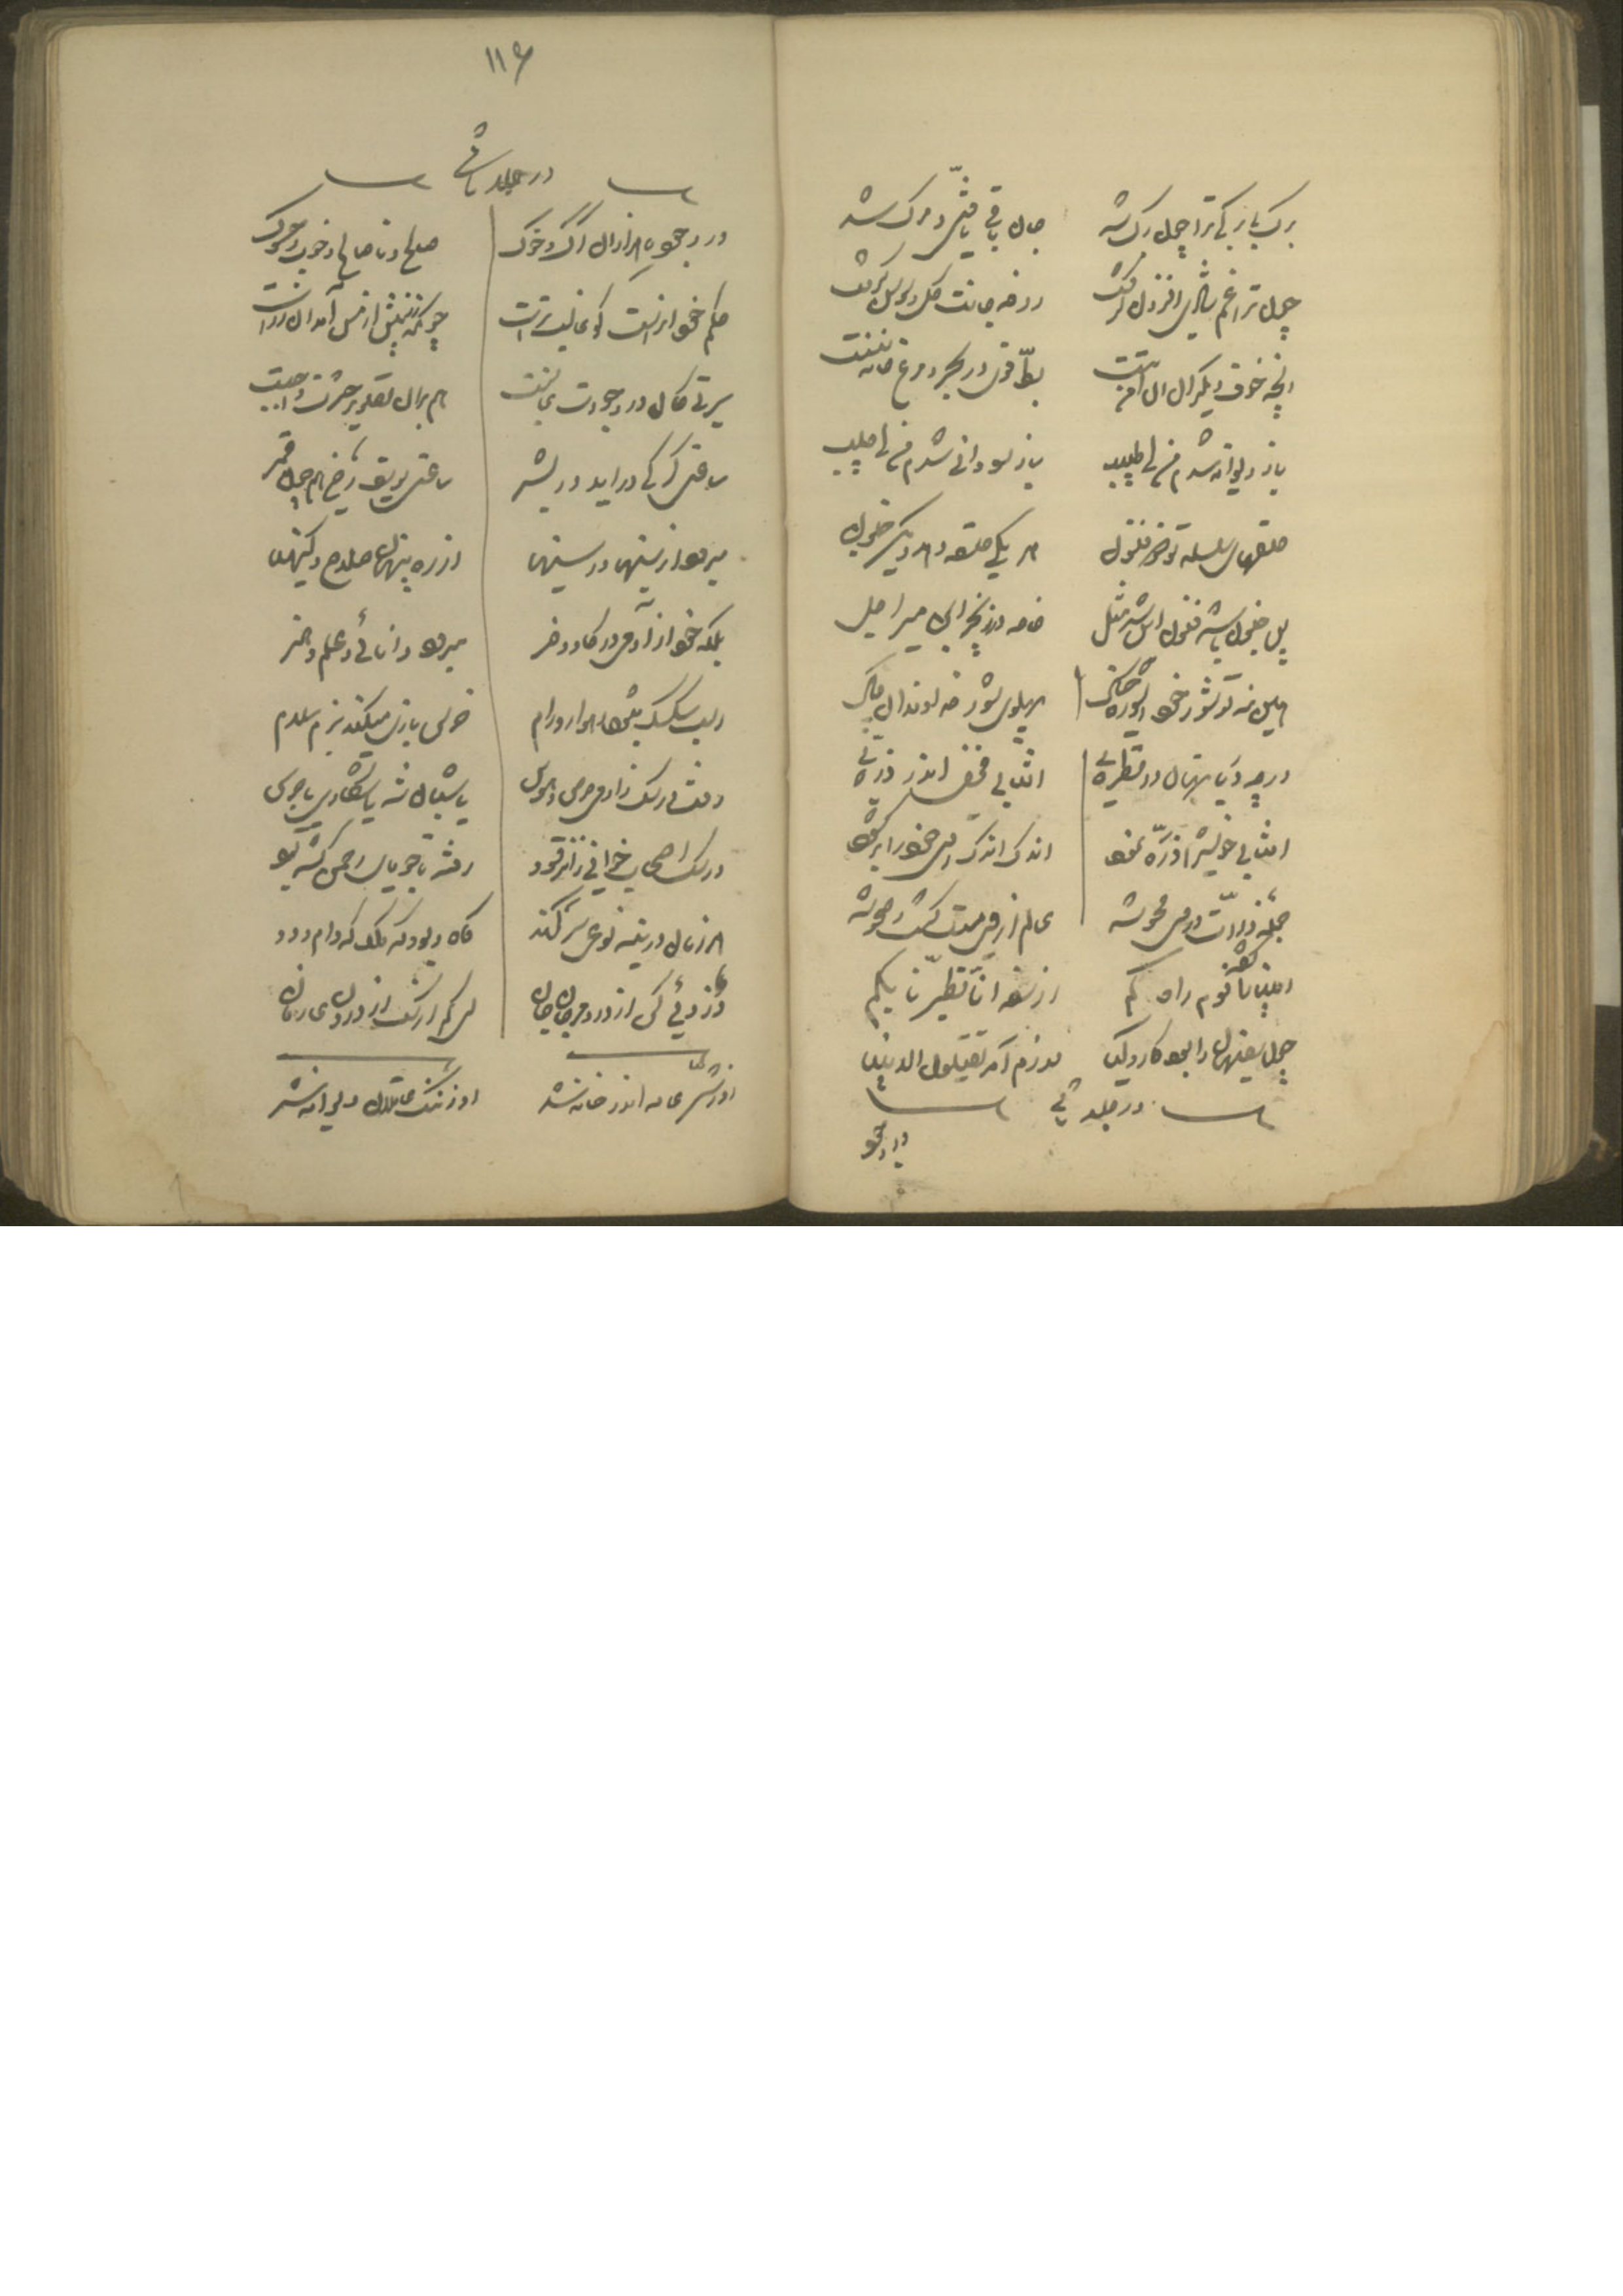 برگ بی برگی ترا چون برگ شد جان باقی یافتی و مرگ شد
چون ترا غم شادی افزودن گرفت روضه جانت گل و سوسن گرفت
انچه خوف دیگران ان امن تست بطّ قوی در بحر و مرغ خانه سست
باز دیوانه شدم من ای طبیب باز سودائی شدم من ای حبیب
حلقهای سلسله تو ذو فنون هر یکی حلقه دهد دیگر جنون
پس جنون باشد فنون این شد مثل خاصه در زنجیر این میر اجل
هین منه تو شور خود ای شوره خاک پهلوی شور خداوندان پاک
درج دریا نهان در قطرهٔ افتابی مخفی اندر ذرّهٔ
افتابی خویش را ذرّه نمود اندک اندک روی خود را برگشود
جمله ذرّات در وی محو شد عالم از وی مست گشت و صحو شد
انبیا را گفته قوم راه گم از سفه انّا تطیّرنا بکم
چون سفیهان را بود کار و کیا لازم آمد یقتلون الانبیا
در جلد ثانی
در وجود
۱۱۶
در جلد ثانی
در وجود ما هزاران گرگ و خوک صالح و ناصالح و خوب و خشوک
حکم خو انراست کو غالبترست چونکه زر بیش از مس آمد ان زرست
سیرتی کان در وجودت غالبست هم بران تصویر حشرت واجبست
ساعتی گرگی دراید در بشر ساعتی یوسف رخی همچون قمر
میرود از سینها در سینها از ره پنهان صلاح و کینها
بلکه خود از آدمی در گاو و خر میرود دانائی و علم و هنر
اسب سکسک میشود رهوار و رام خرس بازی میکند بز هم سلام
رفت در سگ زادمی حرص و هوس یا شبان شد یا شکاری یا حرس
در سگ اصحاب خوئی زان رقود رفته تا جویای رحمن گشته بود
هر زمان در سینه نوعی سر کند گاه دیو و گه ملک گه دام و دد
دزدئی کن از درون مرجان جان ای کم از سگ از درون عارفان
او ز شر عامه اندر خانه شد او ز ننگ عاقلان دیوانه شد